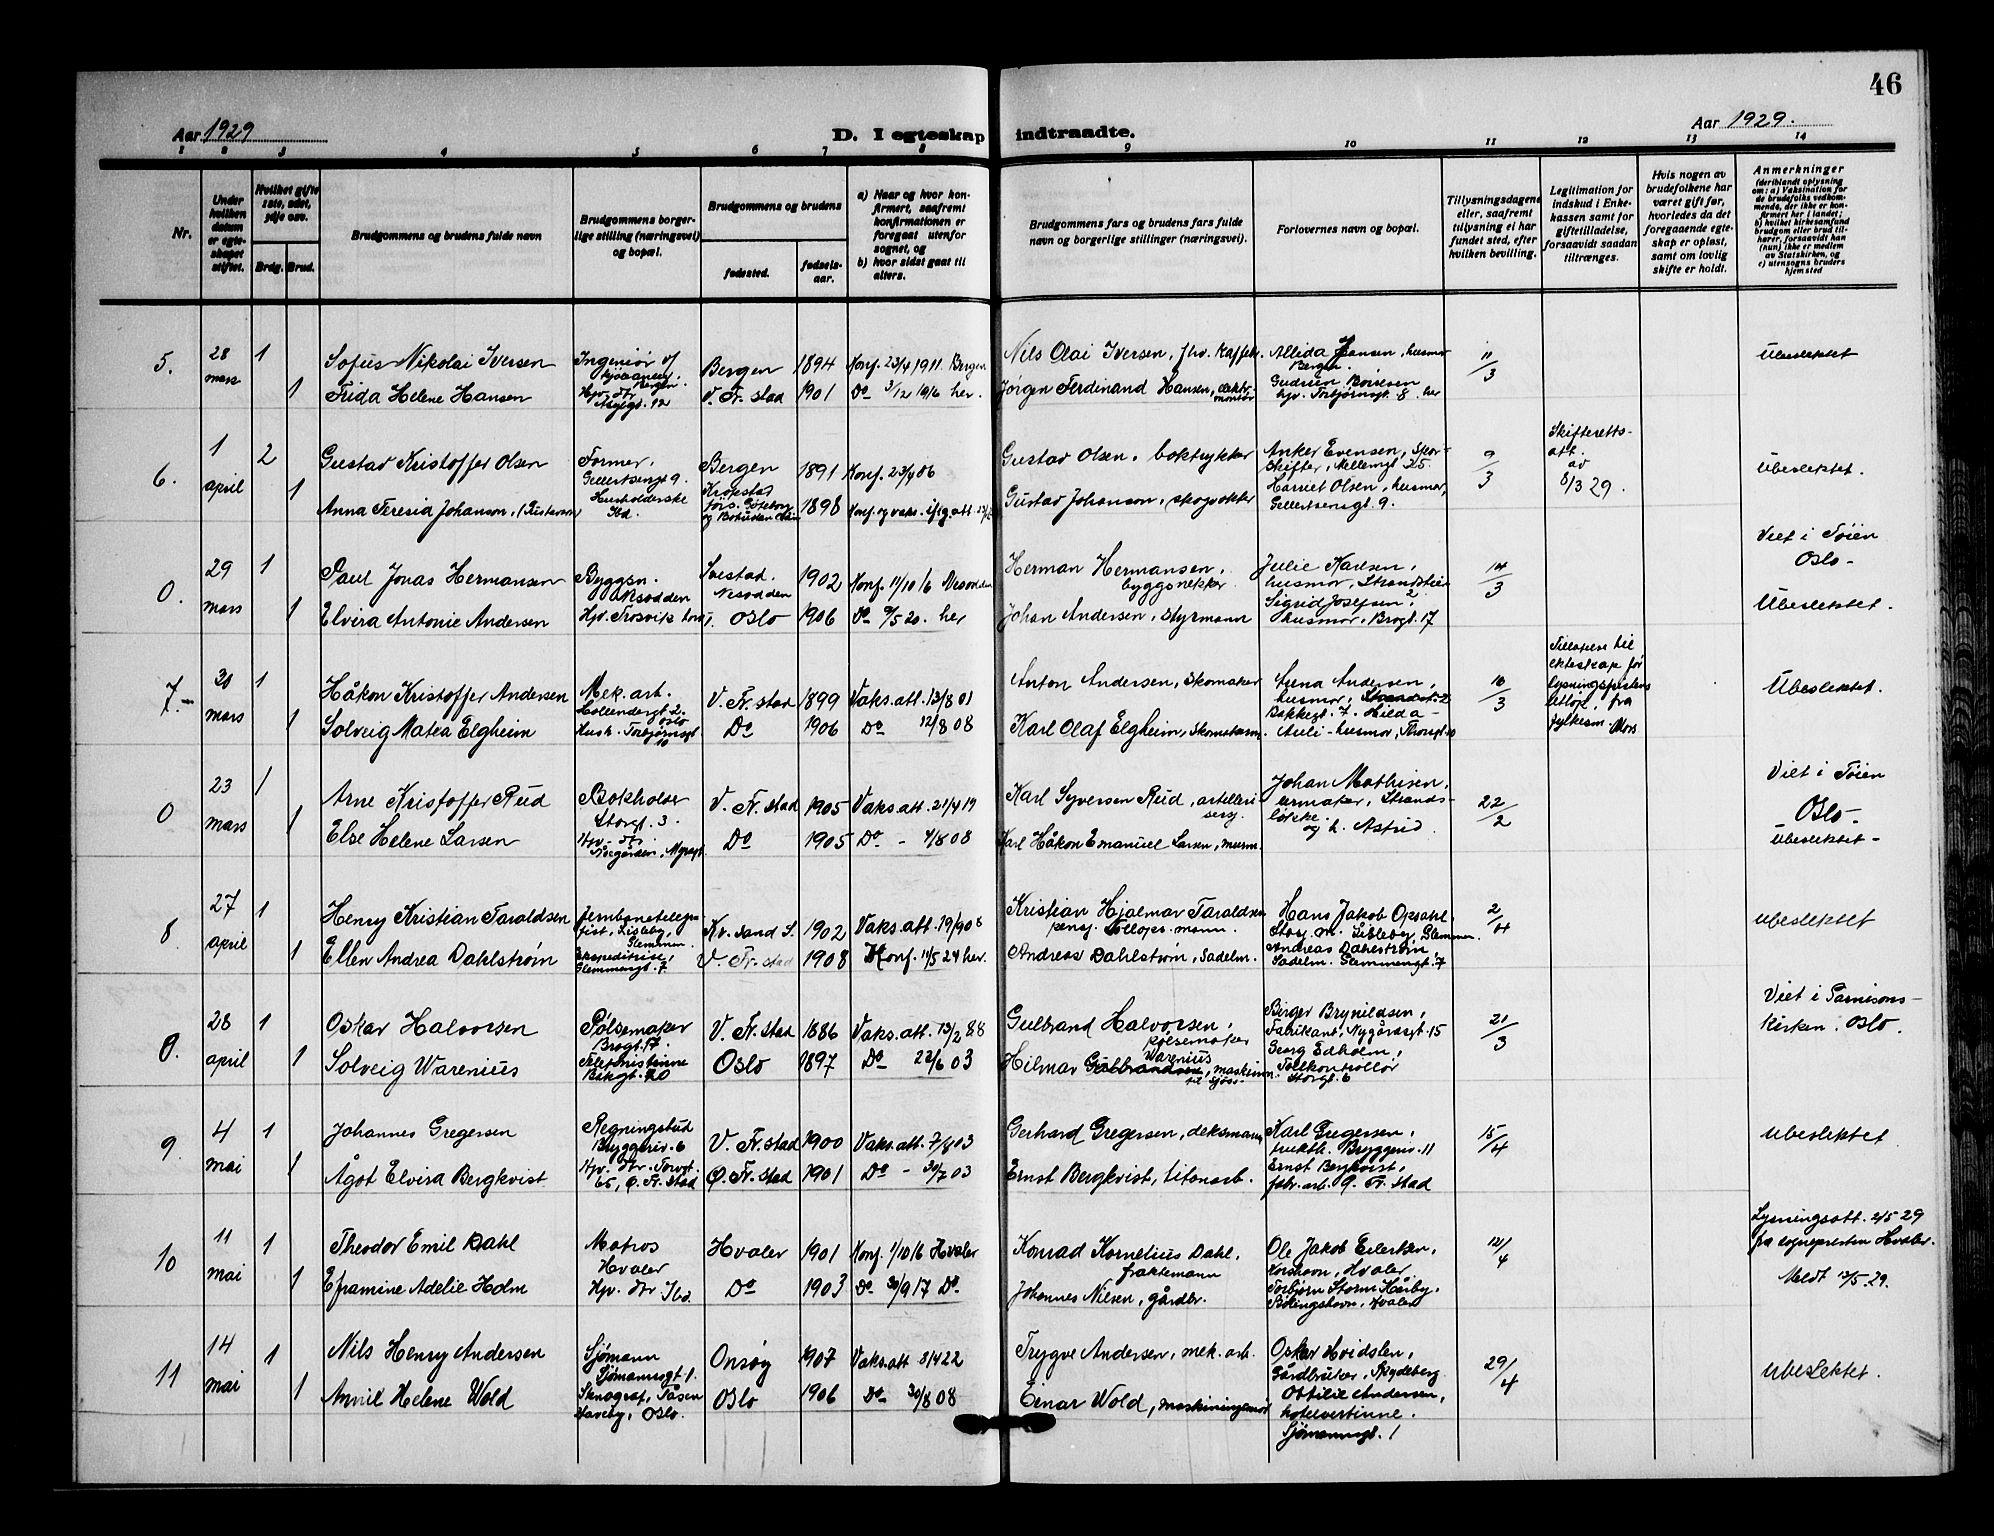 46
Aar 1929
D. I egteskap indtraadte.
Aar 1929.
1 2 3 4 5 6 7 8 9 10 11 12 13 14
Nr.
Under hvilken datum er egteskapet stiftet.
Hvilket gifte 1ste, 2det, 3dje osv.
Brdg. Brud.
Brudgommens og brudens fulde navn
Brudgommens borgerlige stilling (næringsvei) og bopæl.
Brudgommens og brudens
fødested.
fødselsaar.
a) Naar og hvor konfirmert, saafremt konfirmationen er foregaat utenfor sognet, og
b) hvor sidst gaat til alters.
Brudgommens fars og brudens fars fulde navn og borgerlige stillinger (næringsvei).
Forlovernes navn og bopæl.
Tillysningsdagene eller, saafremt tillysning ei har fundet sted, efter hvilken bevilling.
Legitimation for indskud i Enkekassen samt for giftetilladelse, forsaavidt saadan tiltrænges.
Hvis nogen av brudefolkene har været gift før, hvorledes da det foregaaende egteskap er opløst, samt om lovlig skifte er holdt.
Anmerkninger
(deriblandt oplysning om: a) Vaksination for de brudefolks vedkommende, der ikke er konfirmert her i landet; b) hvilket kirkesamfund brudgom eller brud tilhører, forsaavidt han (hun) ikke er medlem av Statskirken, og c) utensogns bruders hjemsted
5. 28 mars 1 Sofus Nikolai Iversen Ingeniør Bergen 1894 Konf. 23/4 1911. Bergen
Nils Olai Iversen, fhv. Kaffebr. Allida Jansen, husmor Bergen. 11/3 Ubeslektet
1 Frida Helene Hansen Hpv. dtr Asylgt. 12 V. Fr. stad 1901 Do 3/12 1916 her.
Jørgen Ferdinand Hansen, elektr. montør Gudrun Boiesen hpv. Torbjørnsgt. 8. her
6. 1 april 2 Gustav Kristoffer Olsen Former, Gellertsengt 9. Bergen 1891 Konf. 23/4 06
Gustav Olsen, boktrykker Anker Evensen, Sporskifter, Mellemgt 25. 9/3 Skifteretts-att. av 8/3 29. Ubeslektet.
1 Anna Teresia Johanson, (Gustavson) Husholderske Ibd. Krokstad förs. Göteborg og Bohuslän 1898 Konf. og vaks. ifig. att.
Gustav Johanson, skogvokter Harriet Olsen, husmor, Gellertsengt. 9.
0. 29 mars 1 Paul Jonas Hermansen Byggsn. Nesodden Svestad. Nesodden 1902 Konf. 11/10 16 Nesodden
Herman Hermansen, byggsnekker Julie Karlsen, husmor, Strandstien 2. 14/3 Viet i Tøien Oslo-
1 Elvira Antonie Andersen Hpd. Trosvik torv 1. Oslo 1906 Do 9/5 20. her
Johan Andersen, styrmann Sigrid Josefsen, husmor, Brogt. 17 Ubeslektet.
7.- 30 mars 1 Håkon Kristoffer Andersen Mek. arb. Hollendergt 2. Oslo V. Fr. stad 1899 Vaks. att. 13/8 01
Anton Andersen, skomaker Anna Andersen, husmor, Bakkegt. 7. 10/3 Tillatelse til ekteskap før lysningsfristens utløp, fra fylkesm. Moss Ubeslektet.
1 Solveig Matea Elgheim Hush. Torbjørnsgt. 10 Do 1906 Do 12/8 08
Karl Olaf Elgheim, skomakerm. Hilda Auli - husmor,
0 23 mars 1 Arne Kristoffer Rud Bokholder Storgt. 3. V. Fr. stad 1905 Vaks. att. 21/4 19
Karl Syversen Rud, artillerisersj. Johan Mathisen, urmaker, Strandsløkke. og h. Astrid. 22/2 Viet i Tøien Oslo-
1 Else Helene Larsen Hpv. dtr Myragt. Do 1905 Do - 4/8 08
Karl Håkon Emanuel Larsen, murm. Ubeslektet-
8. 27 april 1 Henry Kristian Taraldsen Jernbanetelegrafist, Lisleby, Glemmen Kr. sand S. 1902 Vaks. att. 19/9 08
Kristian Hjalmar Taraldsen pensj. Tollopps. mann. Hans Jakob Opsahl, Stasj. m. Lisleby, Glemmen. 2/4 Ubeslektet
1 Ellen Andrea Dahlstrøm Ekspeditrise, Glemmengt. 7 V. Fr. stad 1908 Konf. 11/5 24 her.
Andreas Dahlstrøm, Sadelm. Andreas Dahlstrøm Sadelm. Glemmengt. 7
0. 28 april 1 Oskar Halvorsen Pølsemaker Brogt. 17. V. Fr. stad 1886 Vaks. att. 13/2 88
Gulbrand Halvorsen, Pølsemaker Birger Brynildsen, Fabrikant, Nygårdsgt 15 21/3 Viet i Garnisonskirken. Oslo.
1 Solveig Warenius Telefonistinne Bakgt. 20 Oslo 1897 Do 22/6 03
Hilmar Gulbrandsen Warenius, maskinm. til sjøss Georg Edholm, Tollkontrollør Storgt. 6
9. 4 mai 1 Johannes Gregersen Regningsbud Bryggeriv. 6 V. Fr. stad 1900 Vaks. att. 7/8 03
Gerhard Gregersen, deksmann Karl Gregersen, frukth. Bryggeriv. 11 15/4 Ubeslektet
1 Ågot Elvira Bergkvist Hpv. dtr. Torvgt. 65, Ø. Fr. stad Ø. Fr. stad 1901 Do - 30/7 03
Ernst Bergkvist, titanarb. Ernst Bergkvist, fabr. arb. Ø. Fr. stad
10 11 mai 1 Theodor Emil Dahl Matros Hvaler Hvaler 1901 Konf. 1/10 16 Hvaler
Konrad Kornelius Dahl, fraktemann Ole Jakob Eilertsen, Korshavn, Hvaler, 12/4 Lysningsatt. 2/5 29 fra sognepresten Hvaler.
1 Eframine Adelie Holm Hpv. dtr Ibd. Do 1903 Do 30/9 17 Do.
Johannes Nilsen, gårdbr. Torbjørn Storm Hårby, Rødingshavn, Hvaler Meldt 13/5 29.
11 14 mai 1 Nils Henry Andersen Sjømann Sjømannsgt 1. Onsøy 1907 Vaks. att 8/4 22
Trygve Andersen, mek. arb. Oskar Hvidsten, Gårdbruker, Spydeberg 29/4 Ubeslektet.
1 Annil Helene Wold Stenograf, Tåsen Haveby, Oslo. Oslo 1906 Do 30/8 08
Einar Wold, maskiningeniør Ottilie Andersen, hotelvertinne. Sjømannsgt. 1